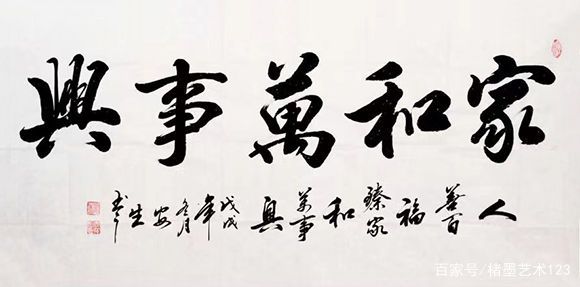 家和萬事興
人善百福臻家和萬事興戊戌年冬月安生书
百家号/楮墨艺术123